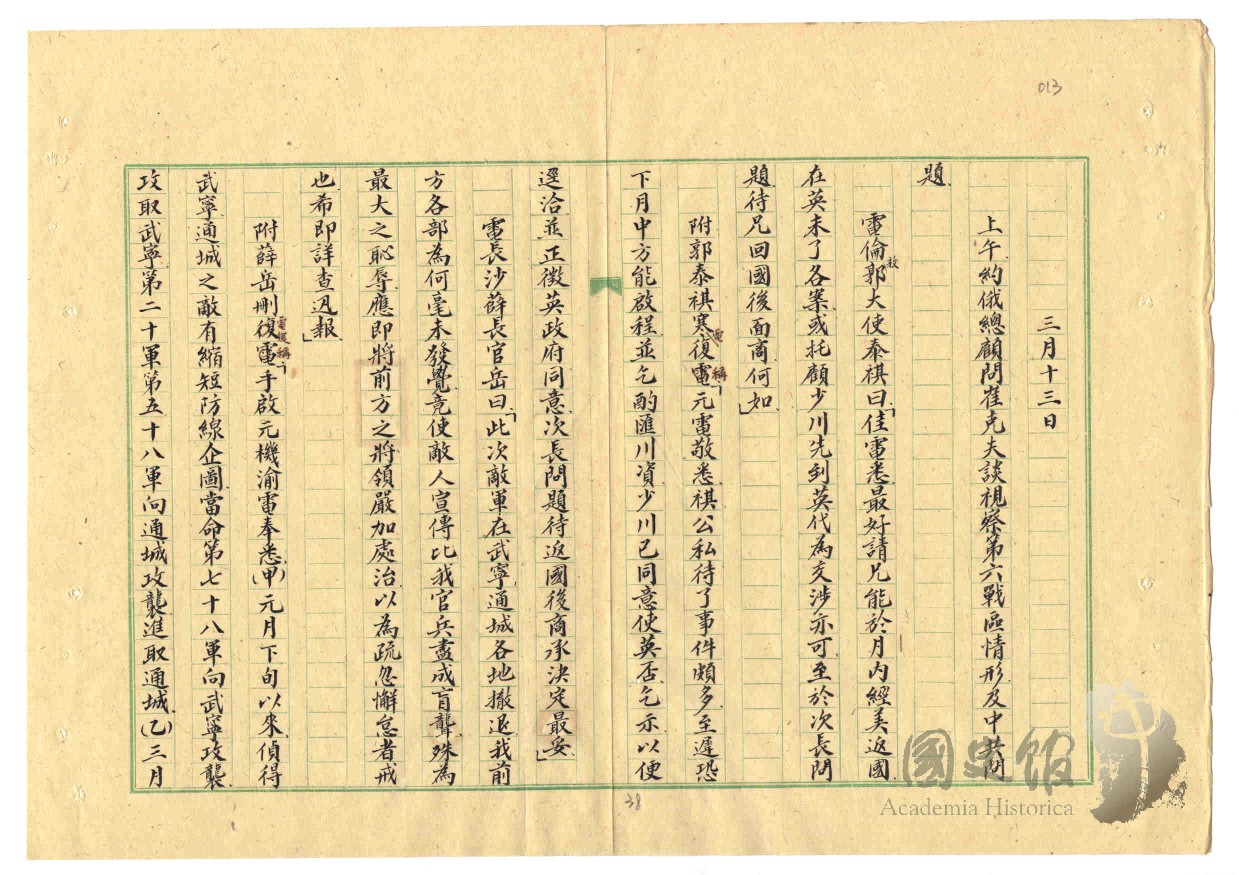 013
三月十三日
上午約俄總顧問崔克夫談視察第六戰區情形及中共問
題
電倫敦郭大使泰祺曰「佳電悉最好請兄能於月內經美返國
在英未了各案或托顧少川先到英代為交涉亦可至於次長問
題待兄回國後面商何如」
附郭泰祺寒復電稱「元電敬悉祺公私待了事件頗多至遲恐
下月中方能啟程並乞酌匯川資少川已同意使英否乞示以便
選洽並正徵英政府同意次長問題待返國後商承決定最妥」
電長沙薛長官岳曰「此次敵軍在武寧通城各地撤退我前
方各部為何毫未發覺竟使敵人宣傳比我官兵盡成盲聾殊為
最大之恥辱應即將前方之將領嚴加處治以為疏忽懈怠者戒
也希即詳查迅報」
附薛岳刪復電稱「手啟元機渝電奉悉(甲)元月下旬以來偵得
武寧通城之敵有縮短防線企圖當命第七十八軍向武寧攻襲
攻取武寧第二十軍第五十八軍向通城攻襲進取通城(乙)三月
38
國史館
Academia Historica